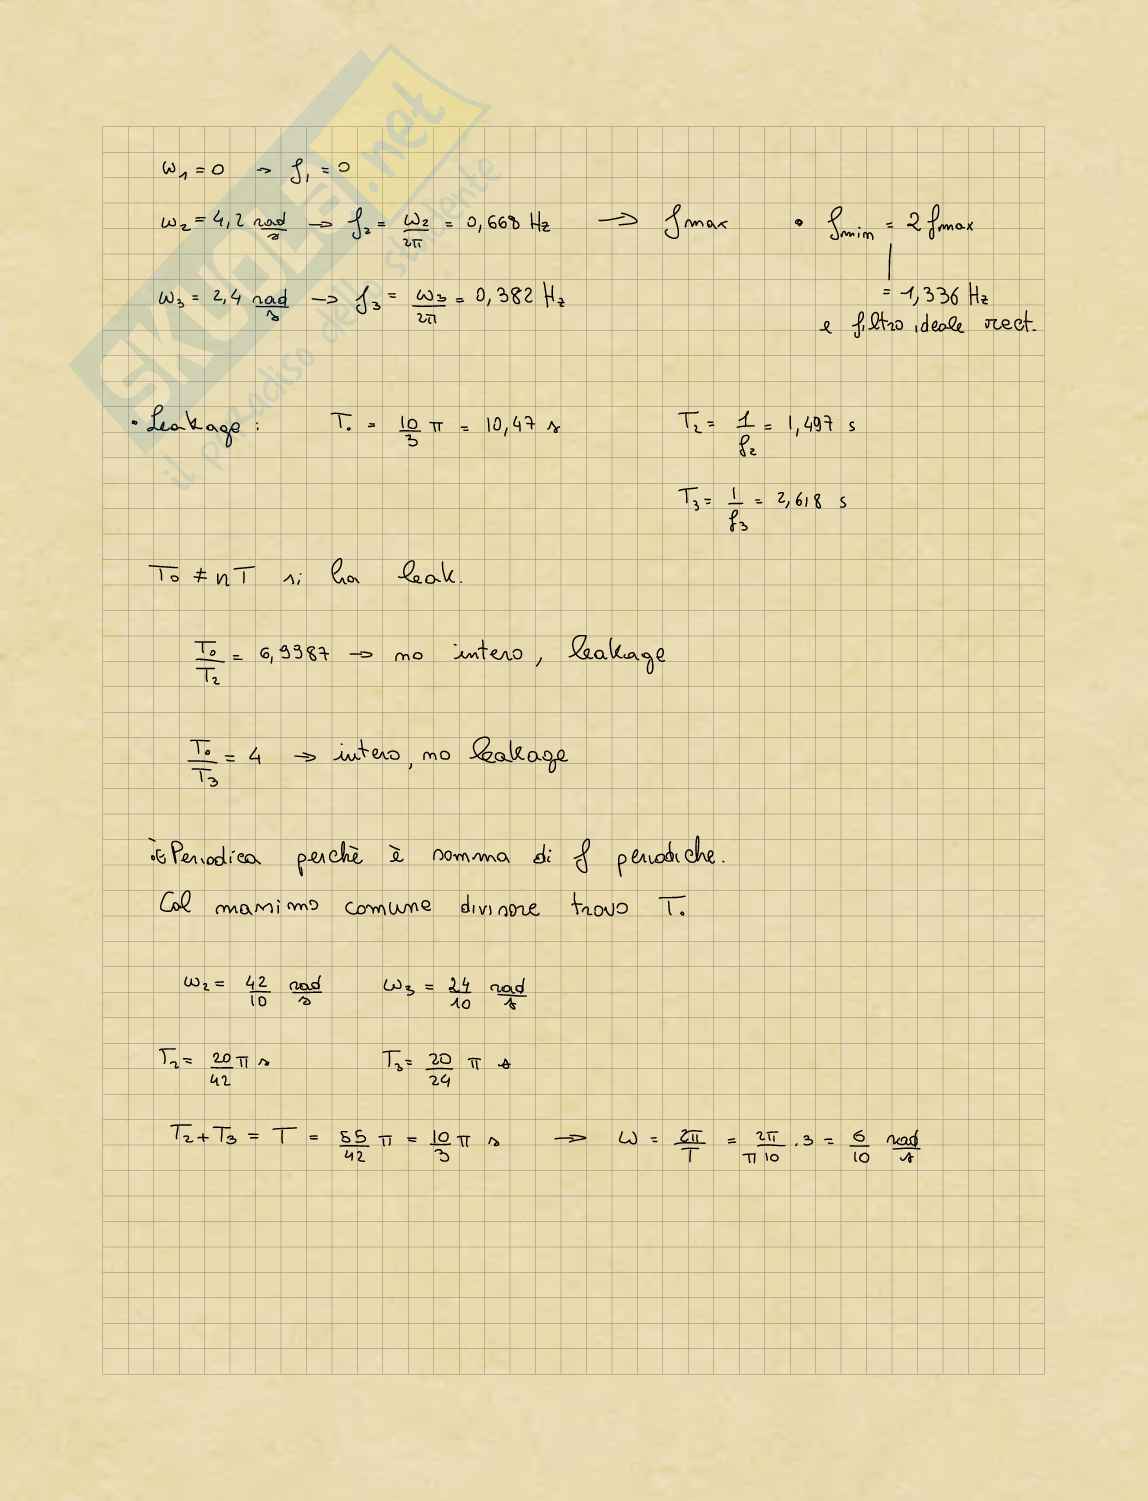 SKUOLA.net
il paradiso dello studente
ω₁ = 0 → f₁ = 0
ω₂ = 4,2 rad/s → f₂ = ω₂/2π = 0,668 Hz → fmax • fmin = 2 fmax
ω₃ = 2,4 rad/s → f₃ = ω₃/2π = 0,382 Hz = 1,336 Hz
e filtro ideale rect.
• Leakage: T₀ = 10/3 π = 10,47 s T₂ = 1/f₂ = 1,497 s
T₃ = 1/f₃ = 2,618 s
T₀ ≠ nT si ha leak.
T₀/T₂ = 6,9987 → no intero, leakage
T₀/T₃ = 4 → intero, no leakage
Periodica perchè è somma di f periodiche.
Col massimo comune divisore trovo T₀
ω₂ = 42/10 rad/s ω₃ = 24/10 rad/s
T₂ = 20/42 π s T₃ = 20/24 π s
T₂ + T₃ = T = 55/42 π = 10/3 π s → ω = 2π/T = 2π/π10 . 3 = 6/10 rad/s